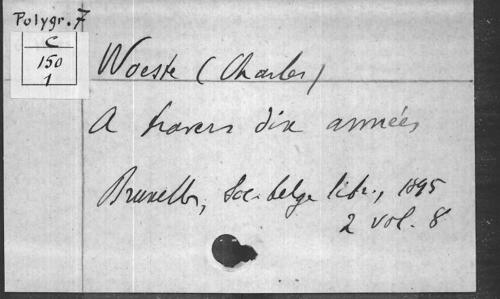 Polygr. 7
C
150
1
Woeste (Charles)
A travers dix années
Bruxelles, Soc. belge libr., 1895
2 vol. 8